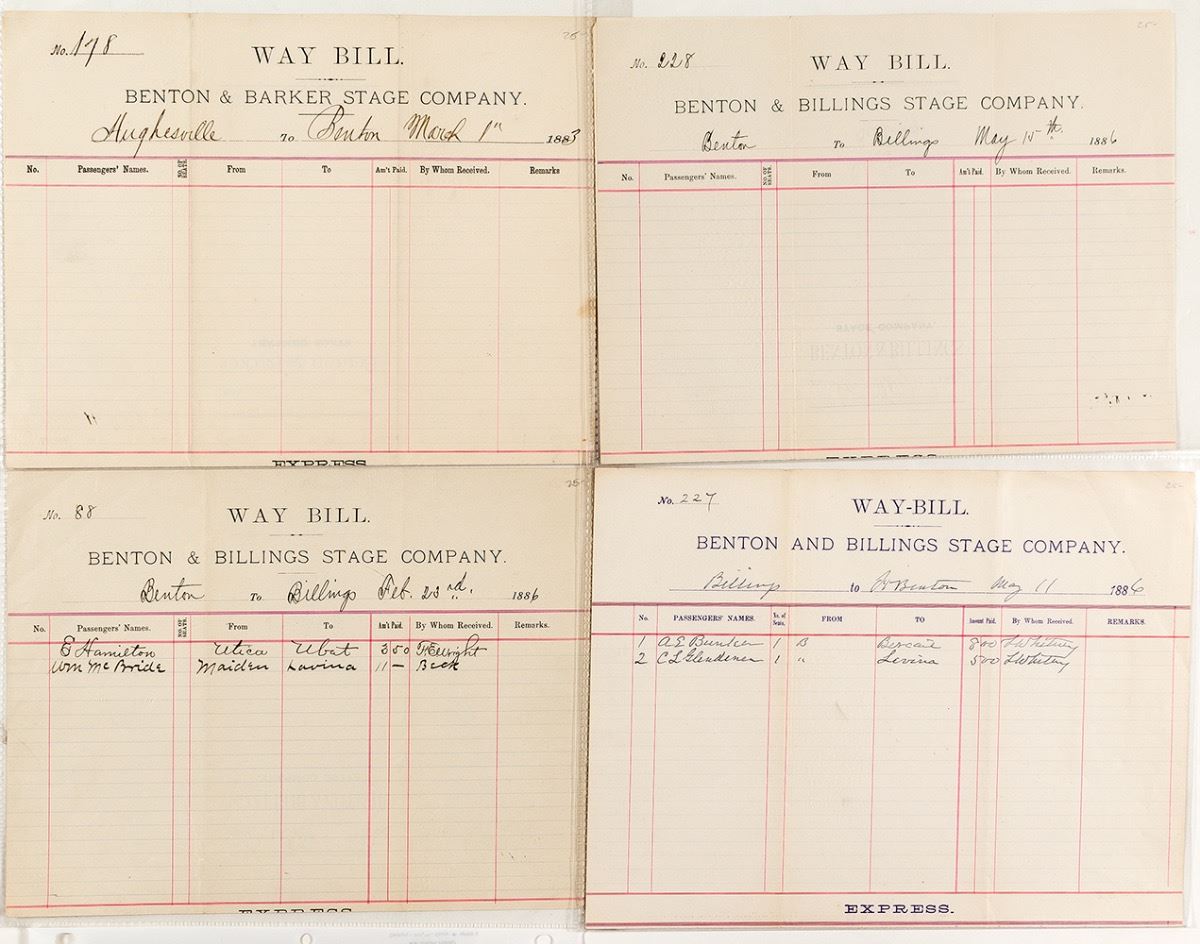 No. 178
25-
WAY BILL.
BENTON & BARKER STAGE COMPANY.
Hughesville To Benton March 1" 1883
No. Passengers' Names. NO. OF SEATS. From To Am't Paid. By Whom Received. Remarks
EXPRESS
25-
No. 228
WAY BILL.
BENTON & BILLINGS STAGE COMPANY.
Benton To Billings May 15th. 1886
No. Passengers' Names. NO. OF SEATS. From To Am't Paid. By Whom Received. Remarks.
EXPRESS
25-
No. 88
WAY BILL.
BENTON & BILLINGS STAGE COMPANY.
Benton To Billings Feb. 23rd. 1886
No. Passengers' Names. NO. OF SEATS. From To Am't Paid. By Whom Received. Remarks.
E Hamilton Utica Ubat 350
Wm McBride Maiden Lavina 11— Beck
EXPRESS
25-
No. 227
WAY-BILL.
BENTON AND BILLINGS STAGE COMPANY.
Billings to Ft Benton May 11 1886
No. PASSENGERS' NAMES. No. of Seats. FROM TO Amount Paid. By Whom Received. REMARKS.
1 A E Bunker 1 B 800 L Whitney
2 C L 1 " Levina 500 L Whitney
EXPRESS.